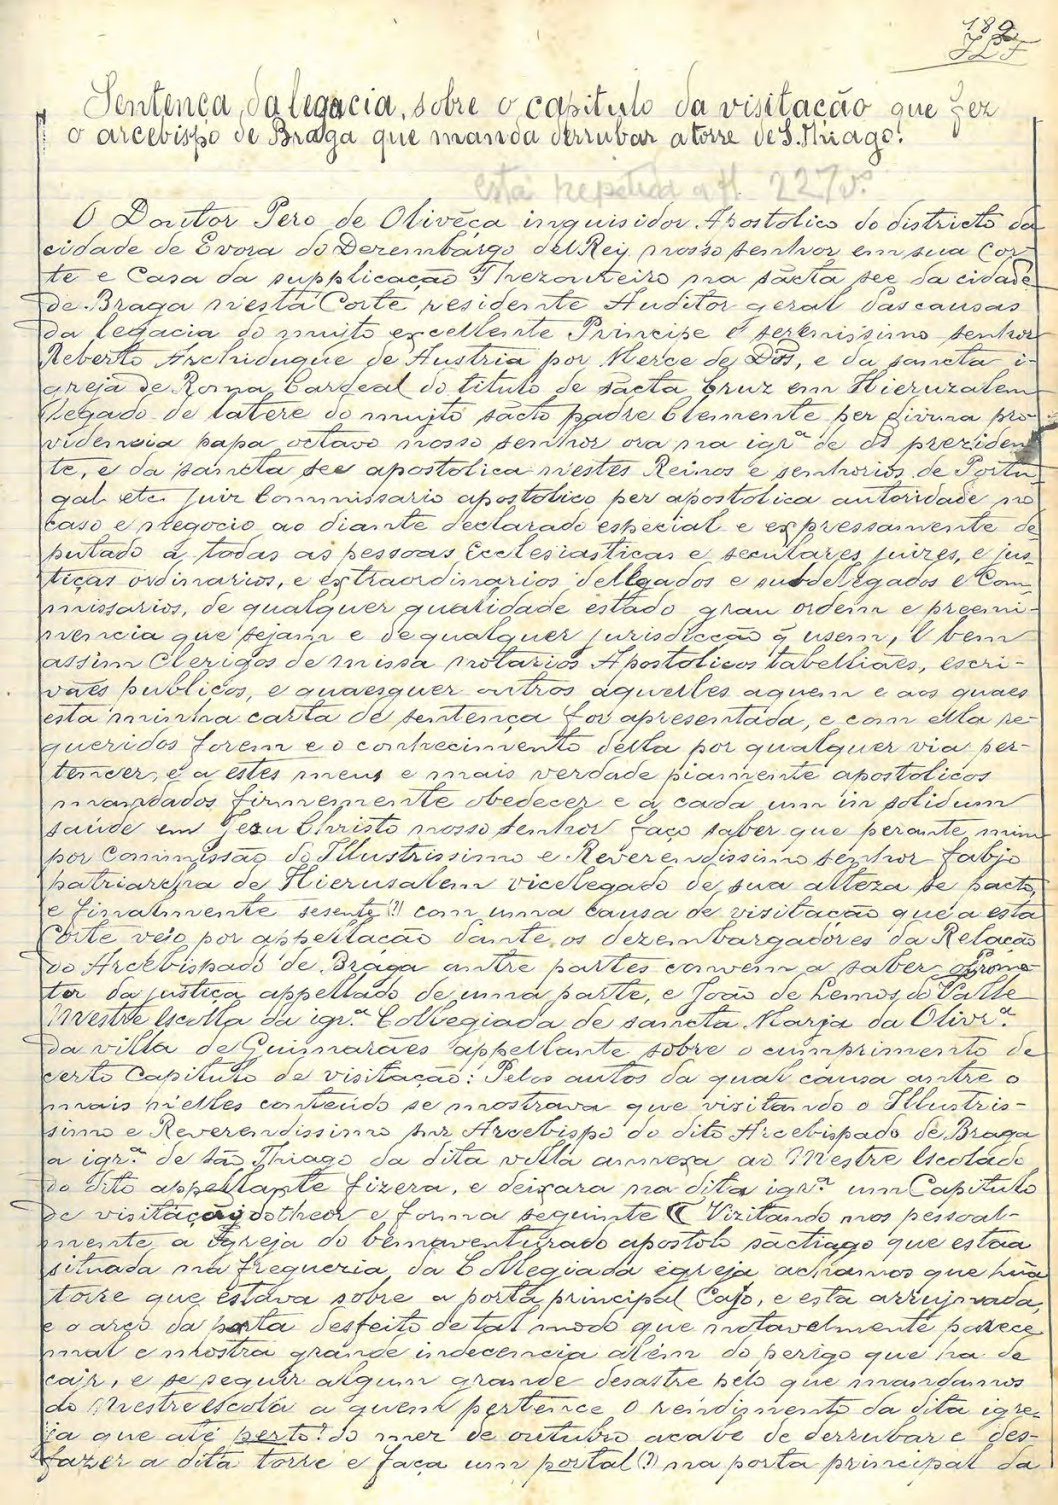 189
Sentença da legacia, sobre o capitulo da visitação que fez
o arcebispo de Braga que manda derrubar a torre de S. Thiago.
está repetida a fl. 227 vº
O Doutor Pero de Olivẽça inquisidor Apostolico do districto da
cidade de Evora do Dezembargo del Rey nosso senhor em sua Cor-
te e Casa da supplicação Thezoureiro na sãcta see da cidade
de Braga nesta Corte residente Auditor geral das causas
da legacia do muito excellente Principe e serenissimo senhor
Reberto Archiduque de Austria por Merce de Ds, e da sancta i-
greja de Roma Cardeal do titulo de sãcta Cruz em Hieruzalem
legado de latere do muyto sãcto padre Clemente per divina pro-
videncia papa octavo nosso senhor ora na igrª de ds preziden-
te, e da sancta see apostolica nestes Reinos e senhorios de Portu-
gal etc. Juiz Commissario apostolico per apostolica autoridade no
caso e negocio ao diante declarado especial e expressamente de
putado a todas as pessoas Ecclesiasticas e seculares, juizes, e jus-
tiças ordinarios, e extraordinarios delegados e subdelegados e Com-
missarios, de qualquer qualidade estado grau ordem e preemi-
nencia que sejam e de qualquer jurisdicção q̃ usem, E bem
assim Clerigos de missa notarios Apostolicos tabelliães, escri-
vães publicos, e quaesquer outros aquelles aquem e aos quaes
esta minha carta de sentença for apresentada, e com ella re-
queridos forem e o conhecimento della por qualquer via per-
tencer, e a estes meus e mais verdade piamente apostolicos
mandados firmemente obedecer e a cada um in solidum
saúde em Jesu Christo nosso senhor faço saber que perante mim
por Commissão do Illustrissimo e Reverendissimo senhor fabjo
patriarcha de Hierusalem vicelegado de sua alteza se pacto,
e finalmente sesente (?) com uma causa de visitação que a esta
Corte veio por appellação dante os dezembargadores da Relação
do Arcebispado de Braga antre partes convem a saber o Promo-
tor da justiça appellado de uma parte, e João de Lemos do Valle
Mestre Escolla da igrª Collegiada de sancta Marja da Olivrª
da villa de Guimarães appellante sobre o cumprimento de
certo Capitulo de visitação: Pelos autos da qual causa antre o
mais n'elles conteúdo se mostrava que visitando o Illustris-
simo e Reverendissimo snr Arcebispo do dito Arcebispado de Braga
a igrª de São Thiago da dita villa annexa ao Mestre Escolado
do dito appellante fizera, e deixara na dita igrª um Capitulo
de visitação do theor e forma seguinte Vizitando nos pessoal-
mente a igreja do bemaventurado apostolo sãctiago que estaa
situada na freguezia da Collegiada egreja achamos que hũa
torre que estava sobre a porta principal Cajo, e esta arrujnada,
e o arco da porta desfeito de tal modo que notavelmente parece
mal e mostra grande indecencia além do perigo que ha de
cajr, e se seguir algum grande desastre pelo que mandamos
ao Mestre escola a quem pertence o rendimento da dita igre-
ja que até perto? do mez de outubro acabe de derrubar e des-
fazer a dita torre e faça um portal (?) na porta principal da